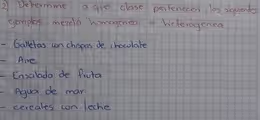 2) Determine a que clase pertenecen los siguientes
ejemplos mezcla homogenea o heterogenea
- Galletas con chispas de chocolate
- Aire
- Ensalada de fruta
- Agua de mar
- cereales con leche